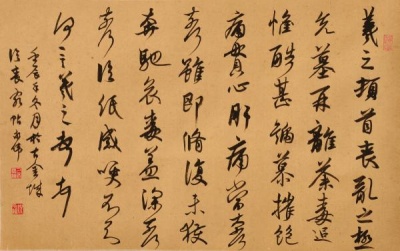 羲之頓首喪亂之極
先墓再離荼毒追
惟酷甚號慕摧絕
痛貫心肝痛當奈何
奈何雖即脩復未獲
奔馳哀毒益深奈何
奈何臨紙感哽不知
何言羲之頓首頓首
冬月於古金陵
臨喪亂帖